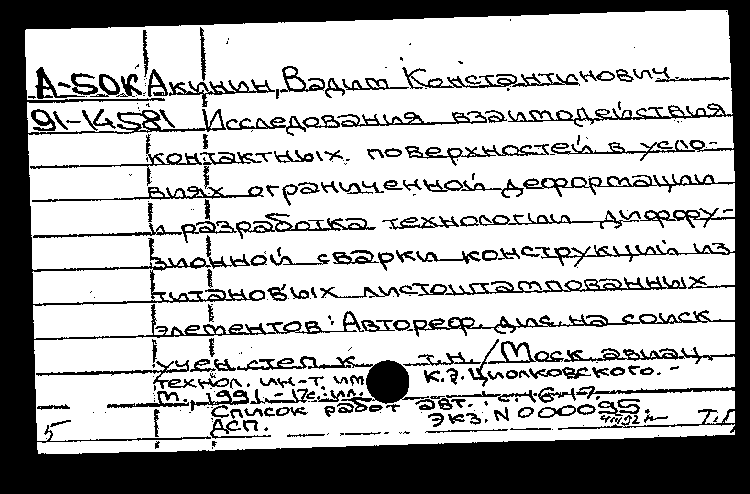 А-50К Акинин, Вадим Константинович.
91-14581 Исследования взаимодействия
контактных поверхностей в усло-
виях ограниченной деформации
и разработка технологии диффу-
зионной сварки конструкций из
титановых листоштампованных
элементов: Автореф. дис. на соиск.
учен. степ. к. т.н. / Моск. авиац.
технол. ин-т. им. К.Э. Циолковского. -
М., 1991. - 17с.: ил.
Список работ авт.: с. 16-17.
ДСП. Экз. N 000095.
5 Т.П